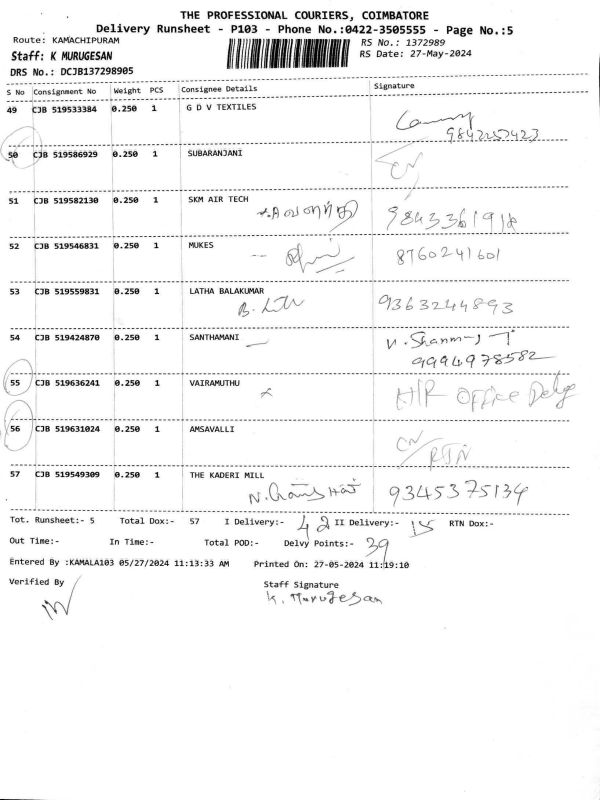 THE PROFESSIONAL COURIERS, COIMBATORE
Delivery Runsheet - P103 - Phone No.:0422-3505555 - Page No.:5
Route: KAMACHIPURAM
RS No.: 1372989
Staff: K MURUGESAN
RS Date: 27-May-2024
DRS No.: DCJB137298905
S No Consignment No Weight PCS Consignee Details Signature
49 CJB 519533384 0.250 1 G D V TEXTILES
9842257423
50 CJB 519586929 0.250 1 SUBARANJANI
CN
51 CJB 519582130 0.250 1 SKM AIR TECH
9843361918
52 CJB 519546831 0.250 1 MUKES
8760241601
53 CJB 519559831 0.250 1 LATHA BALAKUMAR
9363244893
54 CJB 519424870 0.250 1 SANTHAMANI
9994978582
55 CJB 519636241 0.250 1 VAIRAMUTHU
Office
56 CJB 519631024 0.250 1 AMSAVALLI
CN/
RTN
57 CJB 519549309 0.250 1 THE KADERI MILL
9345375134
Tot. Runsheet:- 5 Total Dox:- 57 I Delivery:- 42 II Delivery:- 15 RTN Dox:-
Out Time:- In Time:- Total POD:- Delvy Points:- 39
Entered By :KAMALA103 05/27/2024 11:13:33 AM Printed On: 27-05-2024 11:19:10
Verified By Staff Signature
K. Murugesan